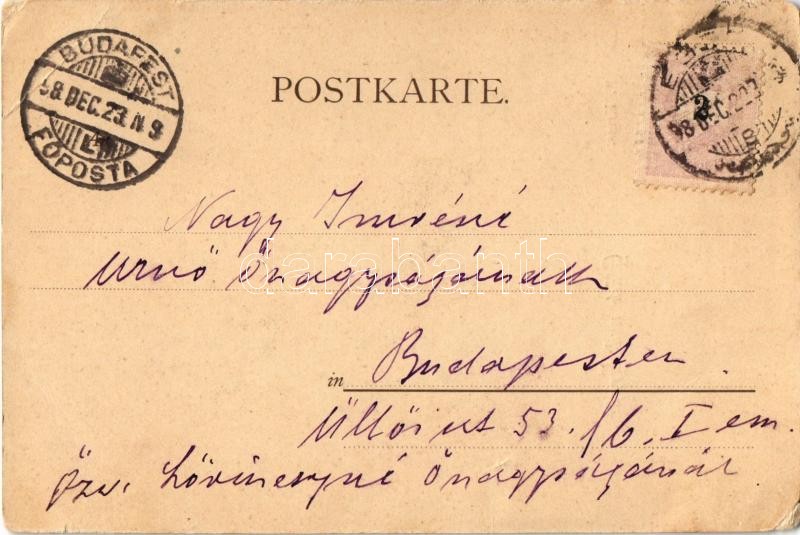 BUDAPEST
98 DEC. 23. N 9
FŐPOSTA
POSTKARTE.
2
98 DEC. 22
Nagy Imréné
Urnő Őnagyságának
darabanth
in Budapesten.
Üllői ut 53. /b. I em.
özv. Lövinczyné Őnagyságánál